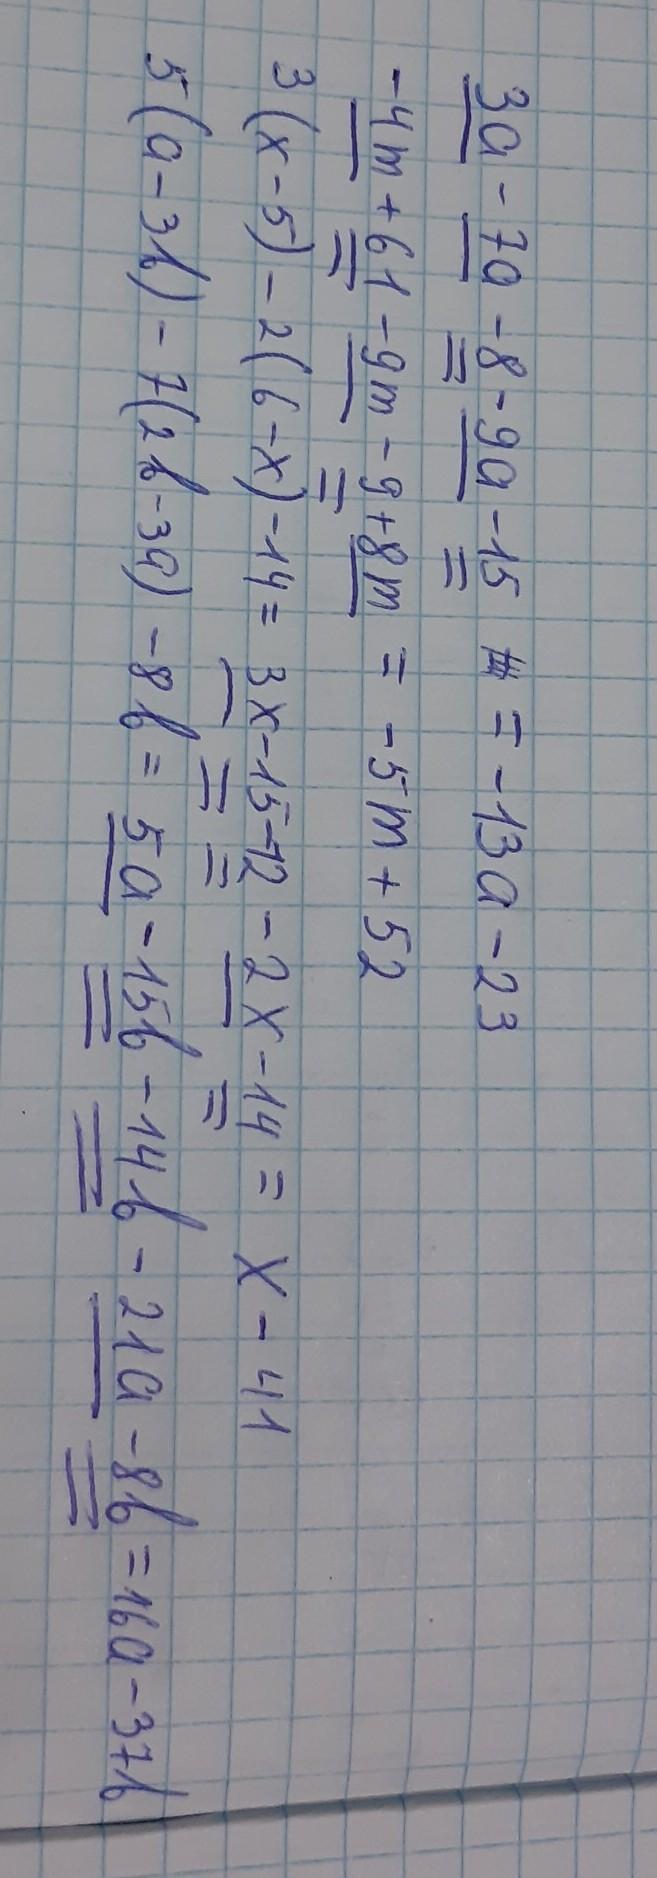 3a - 7a - 8 - 9a - 15 = -13a - 23
-4m + 61 - 9m - 9 + 8m = -5m + 52
3(x - 5) - 2(6 - x) - 14 = 3x - 15 - 12 - 2x - 14 = x - 41
5(a - 3b) - 7(2b - 3a) - 8b = 5a - 15b - 14b - 21a - 8b = 16a - 37b